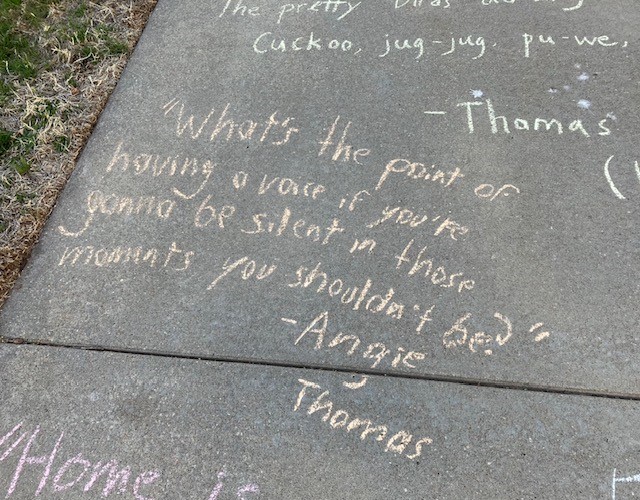 The pretty birds
Cuckoo, jug-jug, pu-we,
-Thomas
(
"What's the point of
having a voice if you're
gonna be silent in those
moments you shouldn't be?"
-Angie
Thomas
"Home is